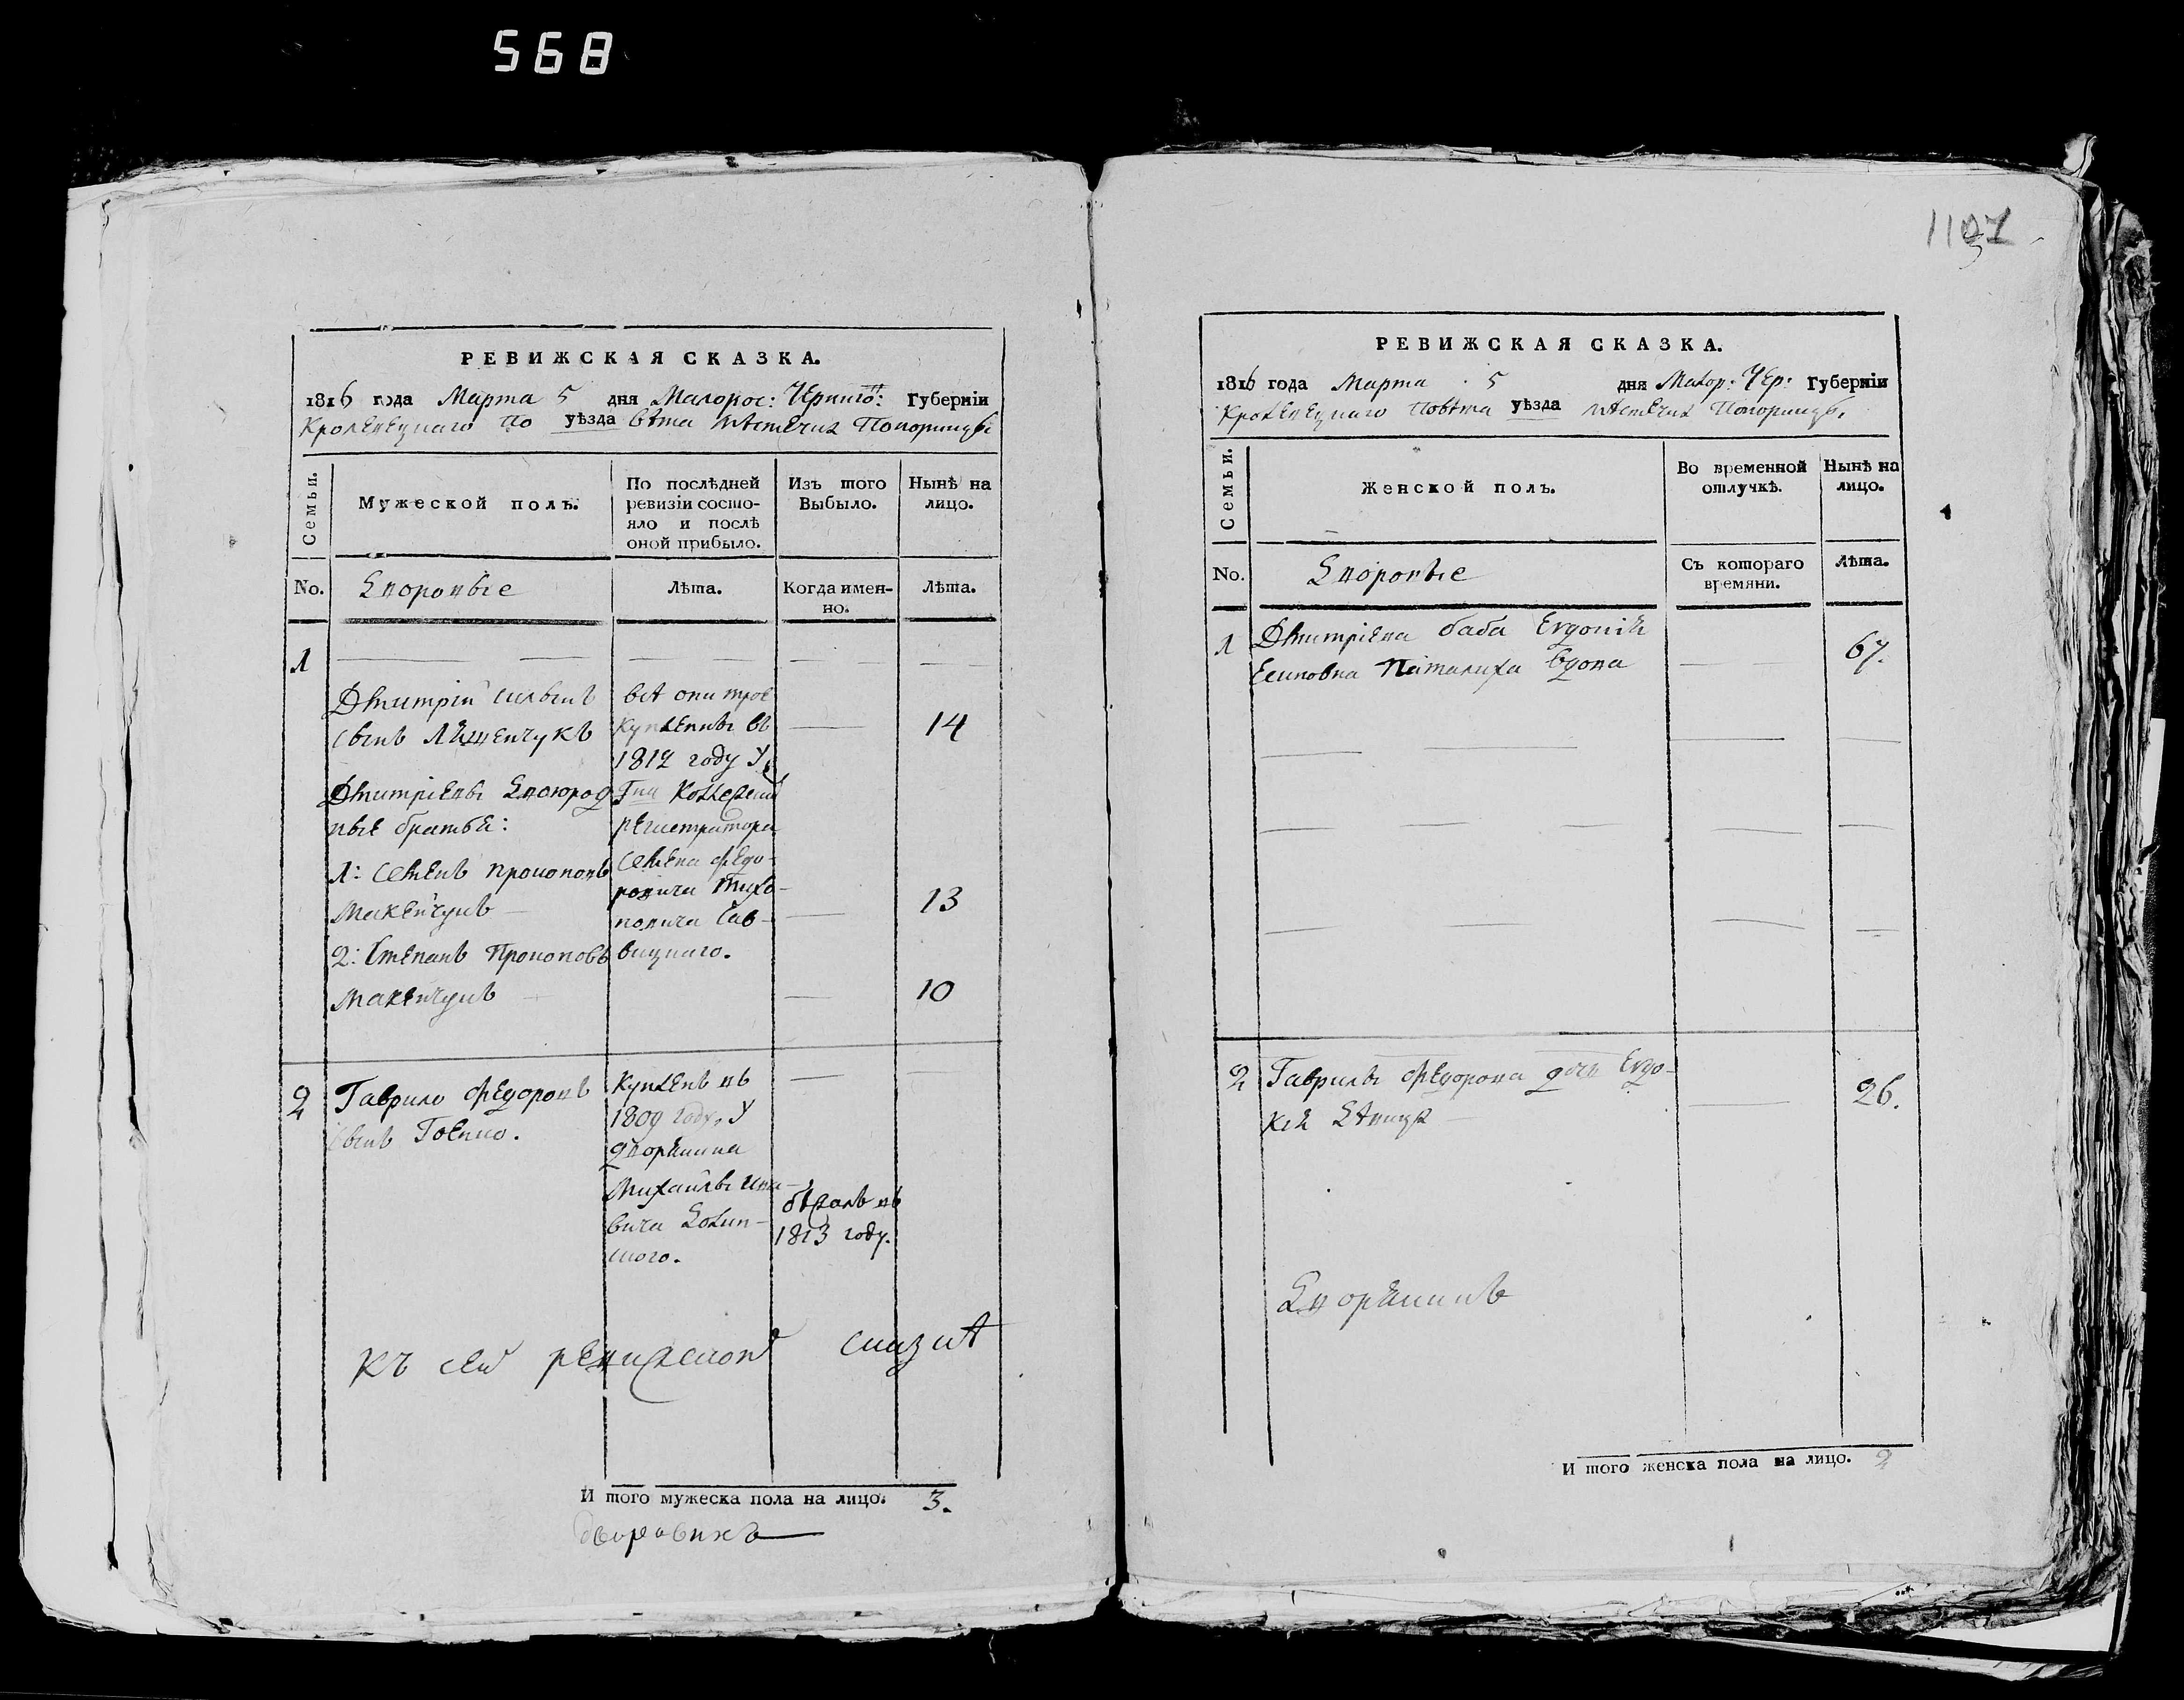 568
1107
РЕВИЖСКАЯ СКАЗКА.
1816 года Марта 5 дня Малорос: Черниго: Губерніи
Кролевецкаго По уѣзда вѣта мѣстечка Понорницы
Семьи.
Мужеской полъ.
По послѣдней
ревизіи состо-
яло и послѣ
оной прибыло.
Изъ того
Выбыло.
Нынѣ на
лицо.
No.
Дворовые
Лѣта.
Когда имен-
но.
Лѣта.
1
Дмитрій
сынъ
всѣ они трое
куплены въ
14
1812 году У
Дмитріевы двоюрод
Гна Коллежскаго
ные братья:
регистратора
1: Семенъ Прокоповъ
Семена Федо-
ровича
13
2: Степанъ Прокоповъ
Сав-
вицкаго.
10
2
Гаврило Федоровъ
сынъ
Купленъ въ
1809 году, У
дворянина
Михайлы
вича
бѣжалъ въ
1813 году.
къ сей ревижской сказкѣ
И того мужеска пола на лицо. 3.
РЕВИЖСКАЯ СКАЗКА.
1816 года Марта 5 дня Малор: Чер: Губерніи
Кролевецкаго Повѣта уѣзда мѣстечка Понорницы
Семьи.
Женской полъ.
Во временной
отлучкѣ.
Нынѣ на
лицо.
No.
Дворовые
Съ котораго
времяни.
Лѣта.
1
Дмитріева баба Евдокія
Есиповна вдова
67.
2
Гаврилы Федорова дочь Евдо-
кія дѣвица
26.
Дворянинъ
И того женска пола на лицо. 2